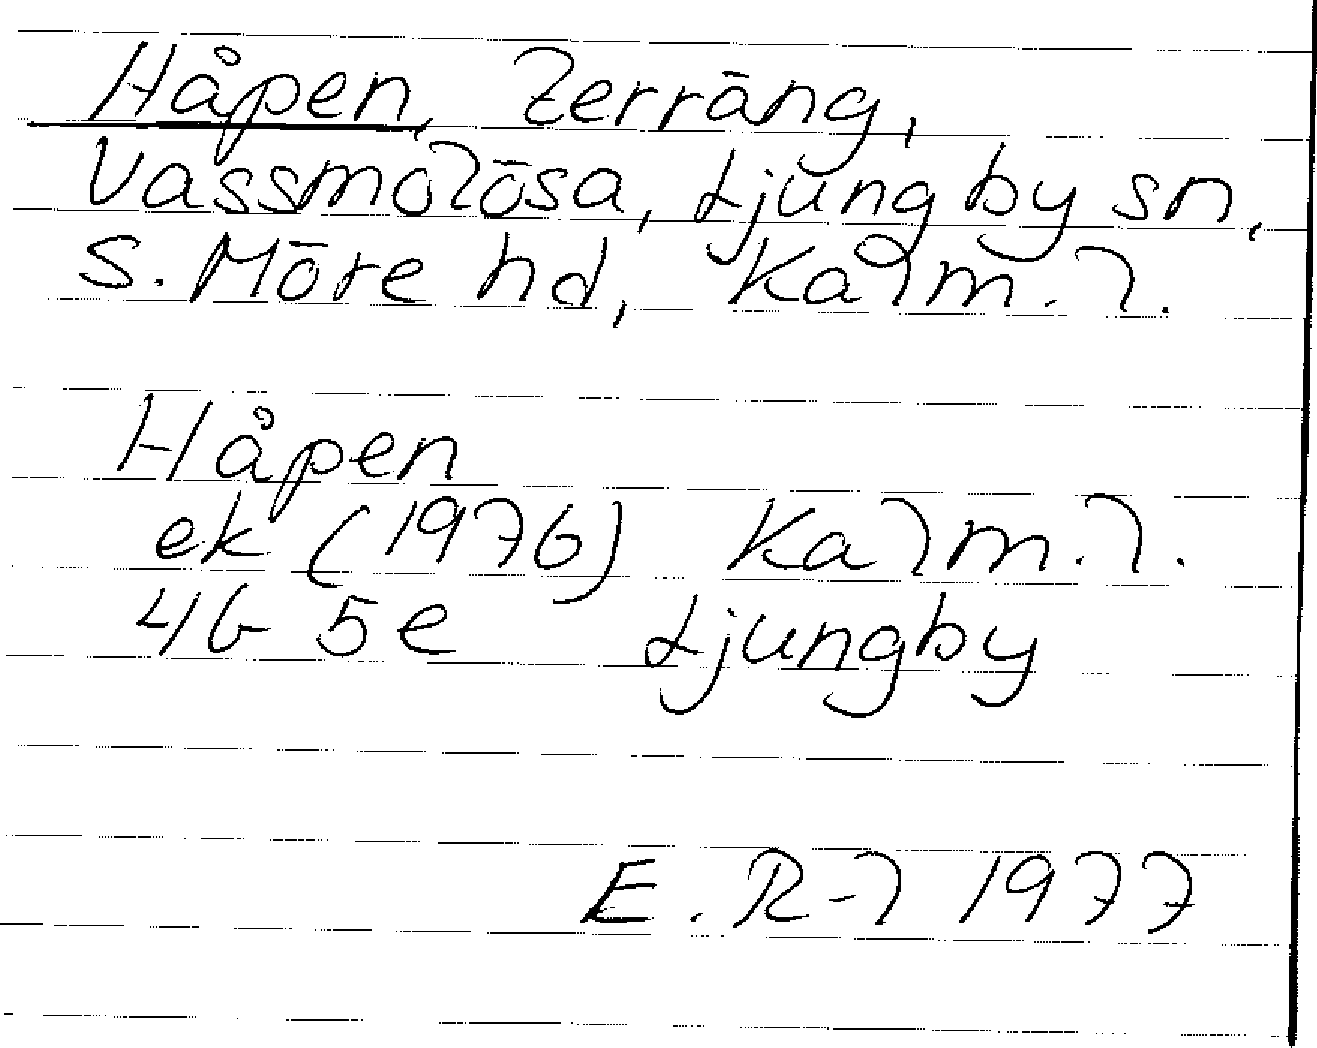 Håpen, Terräng,
Vassmolösa, Ljungby sn,
S. Möre hd, Kalm. l.
Håpen
ek (1976) Kalm. l.
4G 5e Ljungby
E. R-l 1977